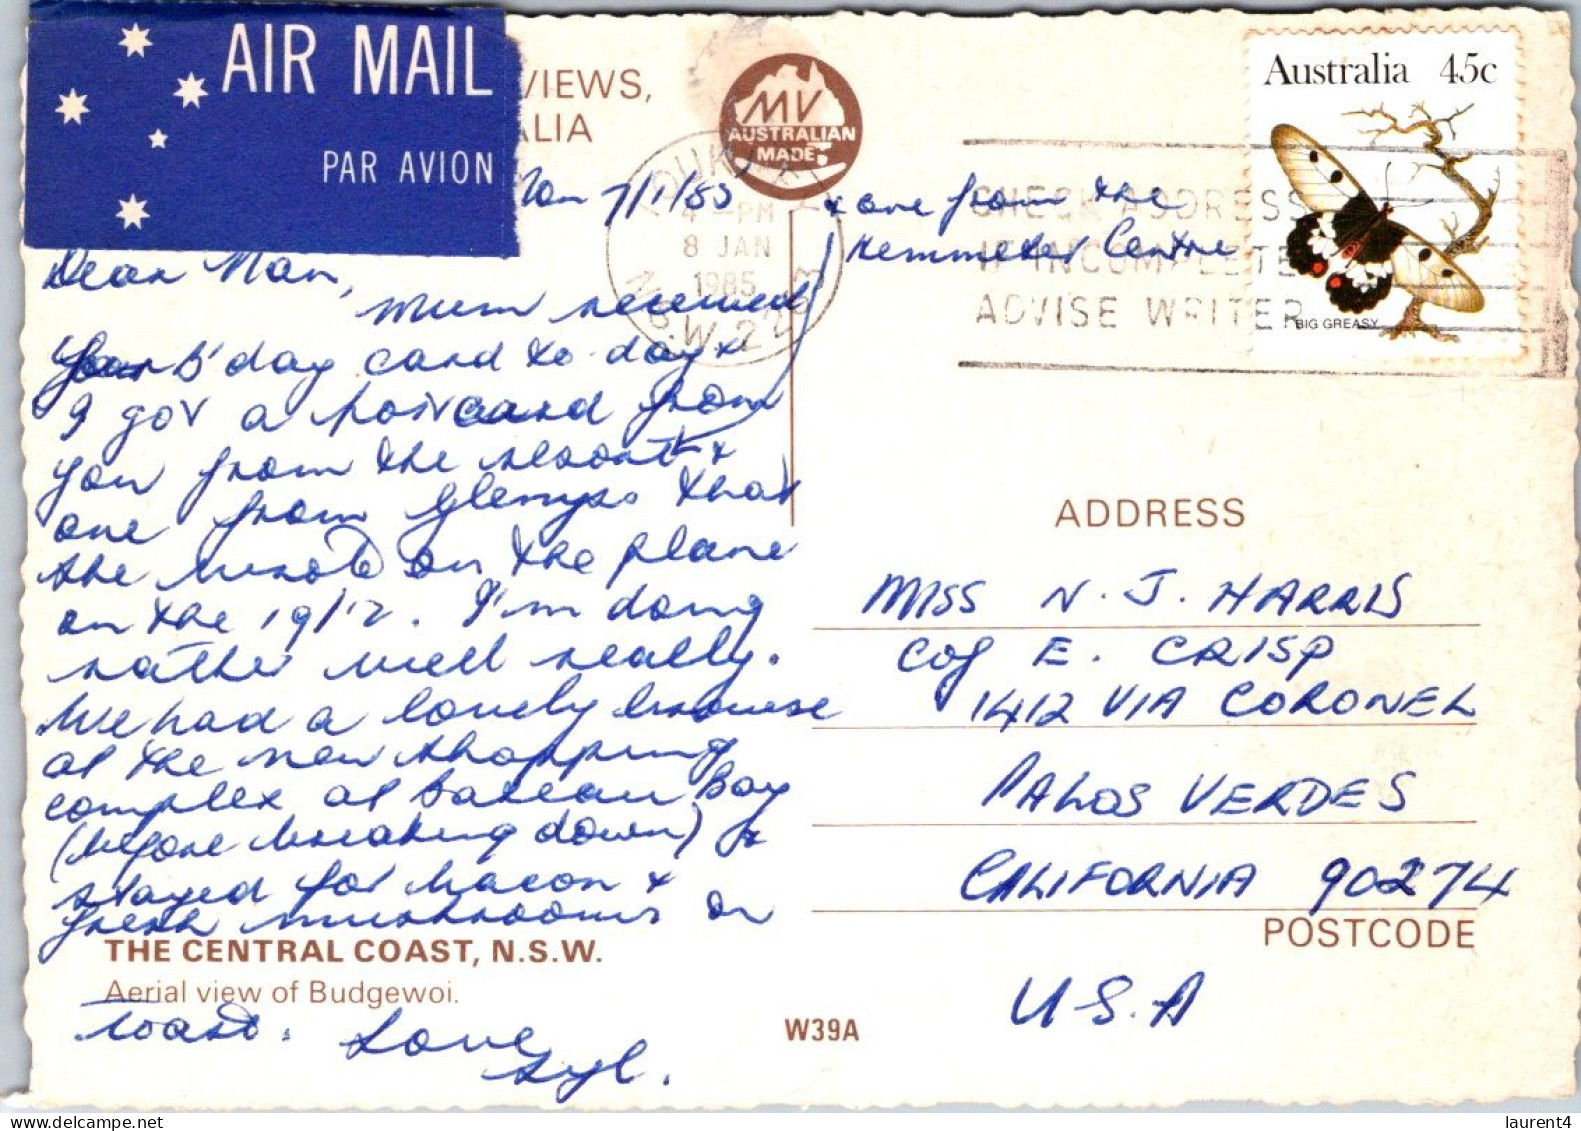 AIR MAIL
PAR AVION
VIEWS,
ALIA
MV
AUSTRALIAN
MADE
Australia 45c
BIG GREASY
4 - PM
8 JAN
1985
N.S.W. 22
CHECK ADDRESS
IF INCOMPLETE
ADVISE WRITER
Mon 7/1/85
Dear Nan,
Mum received
your B'day card to-day &
I got a postcard from
you from the resort &
one from the
Kemmeter Centre
one from Glenys that
she wrote on the plane
on the 19/12. I'm doing
rather well really.
We had a lovely browse
at the new shopping
complex at Bateau Bay
(before breaking down) &
stayed for bacon &
fresh mushrooms on
toast. Love
Syl.
THE CENTRAL COAST, N.S.W.
Aerial view of Budgewoi.
W39A
ADDRESS
MISS N. J. HARRIS
C/of E. CRISP
1412 VIA CORONEL
PALOS VERDES
CALIFORNIA 90274
POSTCODE
U.S.A
www.delcampe.net
laurent4